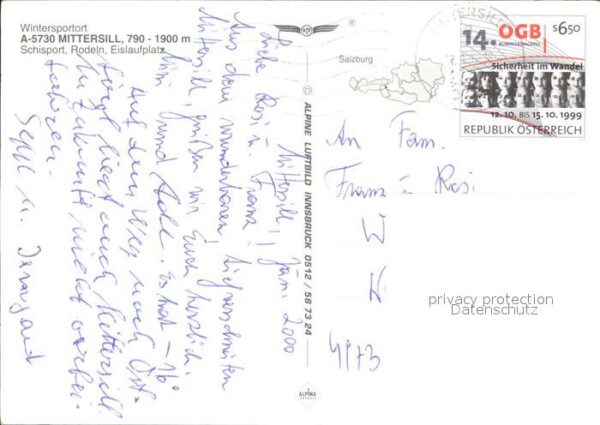 Wintersportort
A-5730 MITTERSILL, 790 - 1900 m
Schisport, Rodeln, Eislaufplatz
Mittersill, Jän. 2000
Liebe Rosi u. Franz!
Aus dem wunderbaren, tiefverschneiten
Mittersill, grüßen wir Euch herzlich.
und Es hat -16°
Auf dem Weg nach Ost-
tirol liegt auch Mittersill.
nicht vorbei-
fahren.
Sepp u. Irmgard
© ALPINE LUFTBILD INNSBRUCK 0512 / 58 73 24
ALPINA
Salzburg
14. ÖGB
BUNDESKONGRESS
S 6,50
Sicherheit im Wandel
12. 10. BIS 15. 10. 1999
REPUBLIK ÖSTERREICH
An Fam.
Franz u Rosi
W
K
4973
privacy protection
Datenschutz